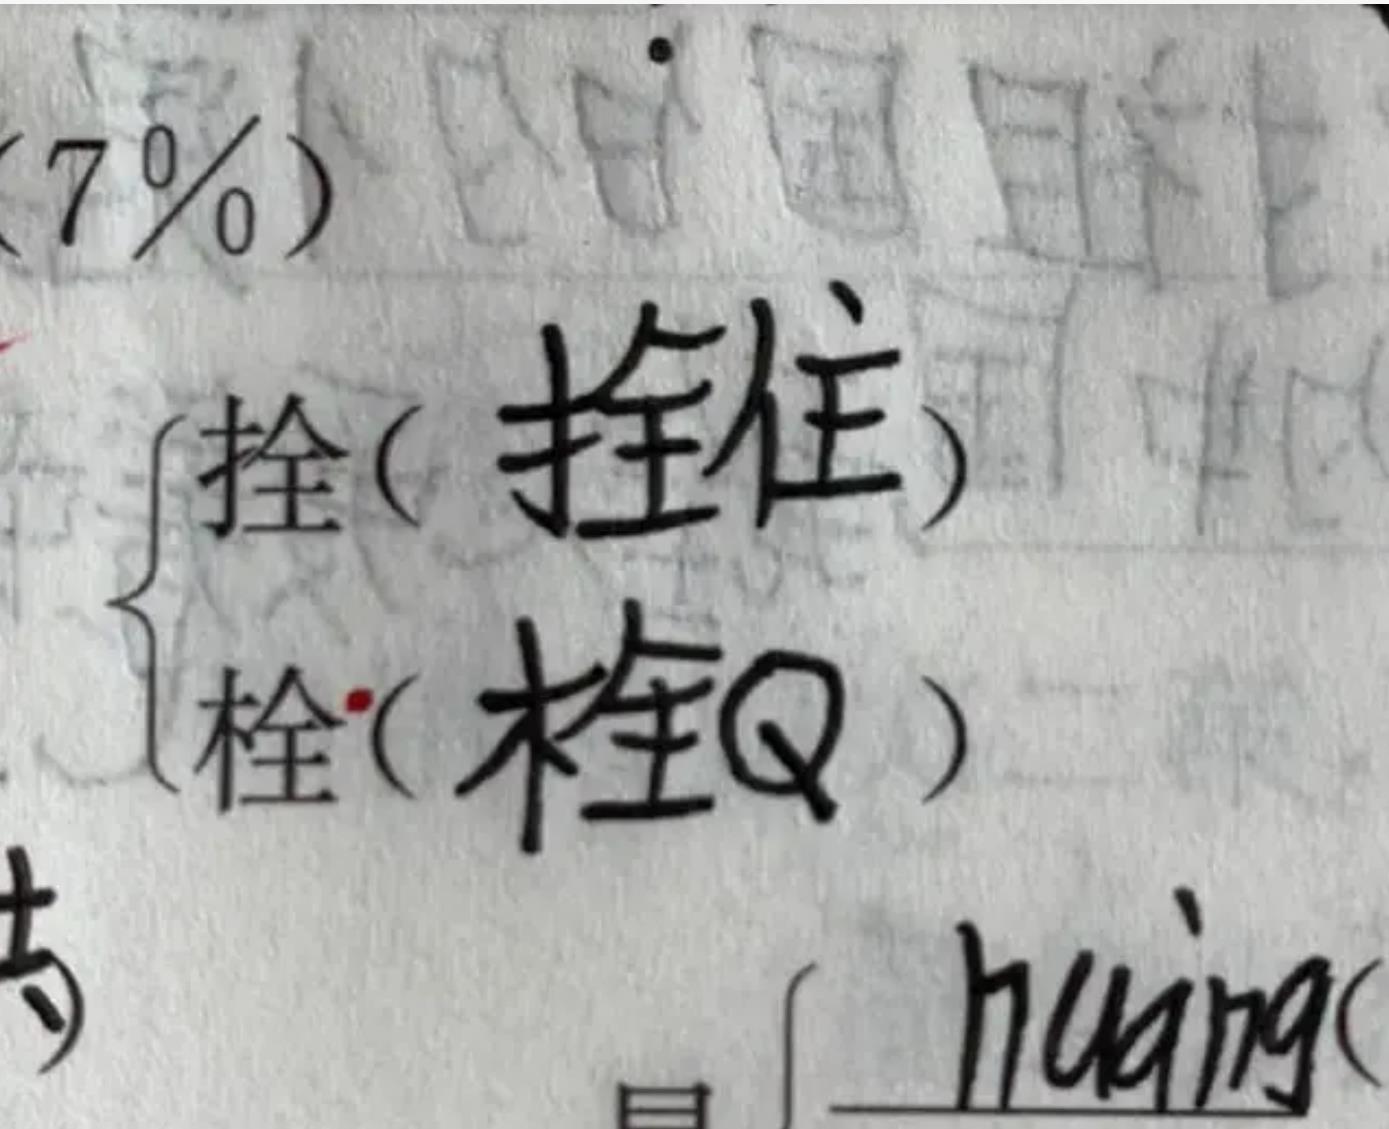 (7%)
拴(拴住)
栓(栓Q)
huàng(